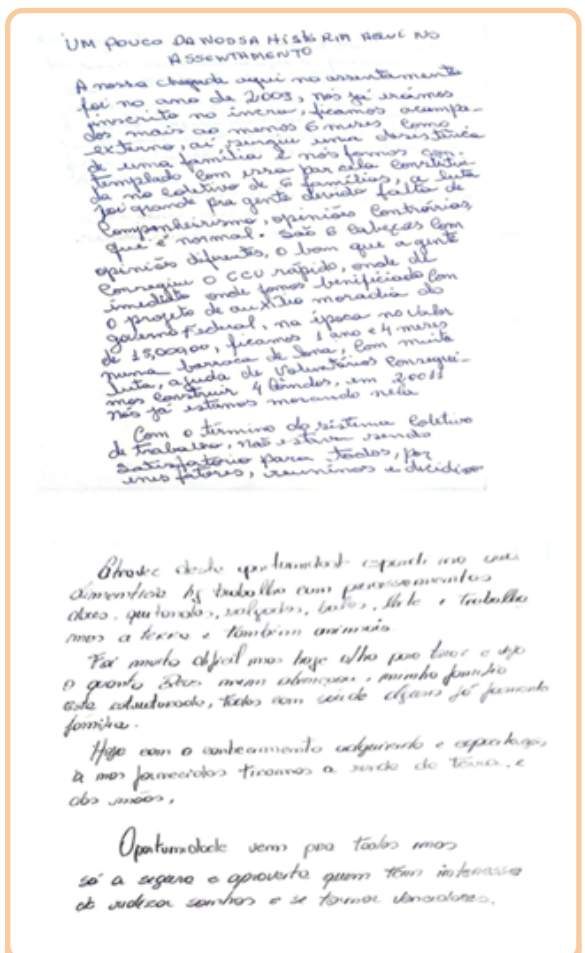 UM POUCO DA NOSSA HISTÓRIA AQUI NO
ASSENTAMENTO
A nossa chegada aqui no assentamento
foi no ano de 2009, nós já erámos
inscrito no incra, ficamos acampa-
dos mais ao menos 6 meses, como
externo, aí, surgiu uma desistência
de uma família e nós fomos con-
templado com essa parcela constituí-
da no coletivo de 6 famílias, a luta
foi grande pra gente devido falta de
Companheirismo, opiniões Contrárias,
que é normal. São 6 Cabeças Com
opiniões diferentes, o bom que a gente
Conseguiu o CCU rápido, onde de
imediato onde fomos benificiado Com
o projeto de auxílio moradia do
governo Federal, na época no valor
de 15,000,00, ficamos 1 ano e 4 meses
numa barraca de lona, Com muita
luta, ajuda de Voluntários Consegui-
mos Construir 4 Cômodos, em 20011
nós já estamos morando nela
Com o término do sistema Coletivo
de trabalho, não estava sendo
Satisfatório para todos, por
fatores, reunimos e decidiu
Através desta oportunidade expandi
alimentícia hj trabalho com processamentos
quitandas, salgados, bolos, leite e trabalho
mos a terra e também animais.
Foi muito difícil mas hoje olho para trás e vejo
o quanto Deus nem abençoou, minha família
esta estruturada, todos com saúde alguns já formando
família.
Hoje com o conhecimento adquirindo e capacitação
a nos fornecidos tiramos a renda da terra, e
das mãos,
Oportunidade vem pra todos mas
só a segura e aproveita quem tem interesse
de realizar sonhos e se tornar vencedores.